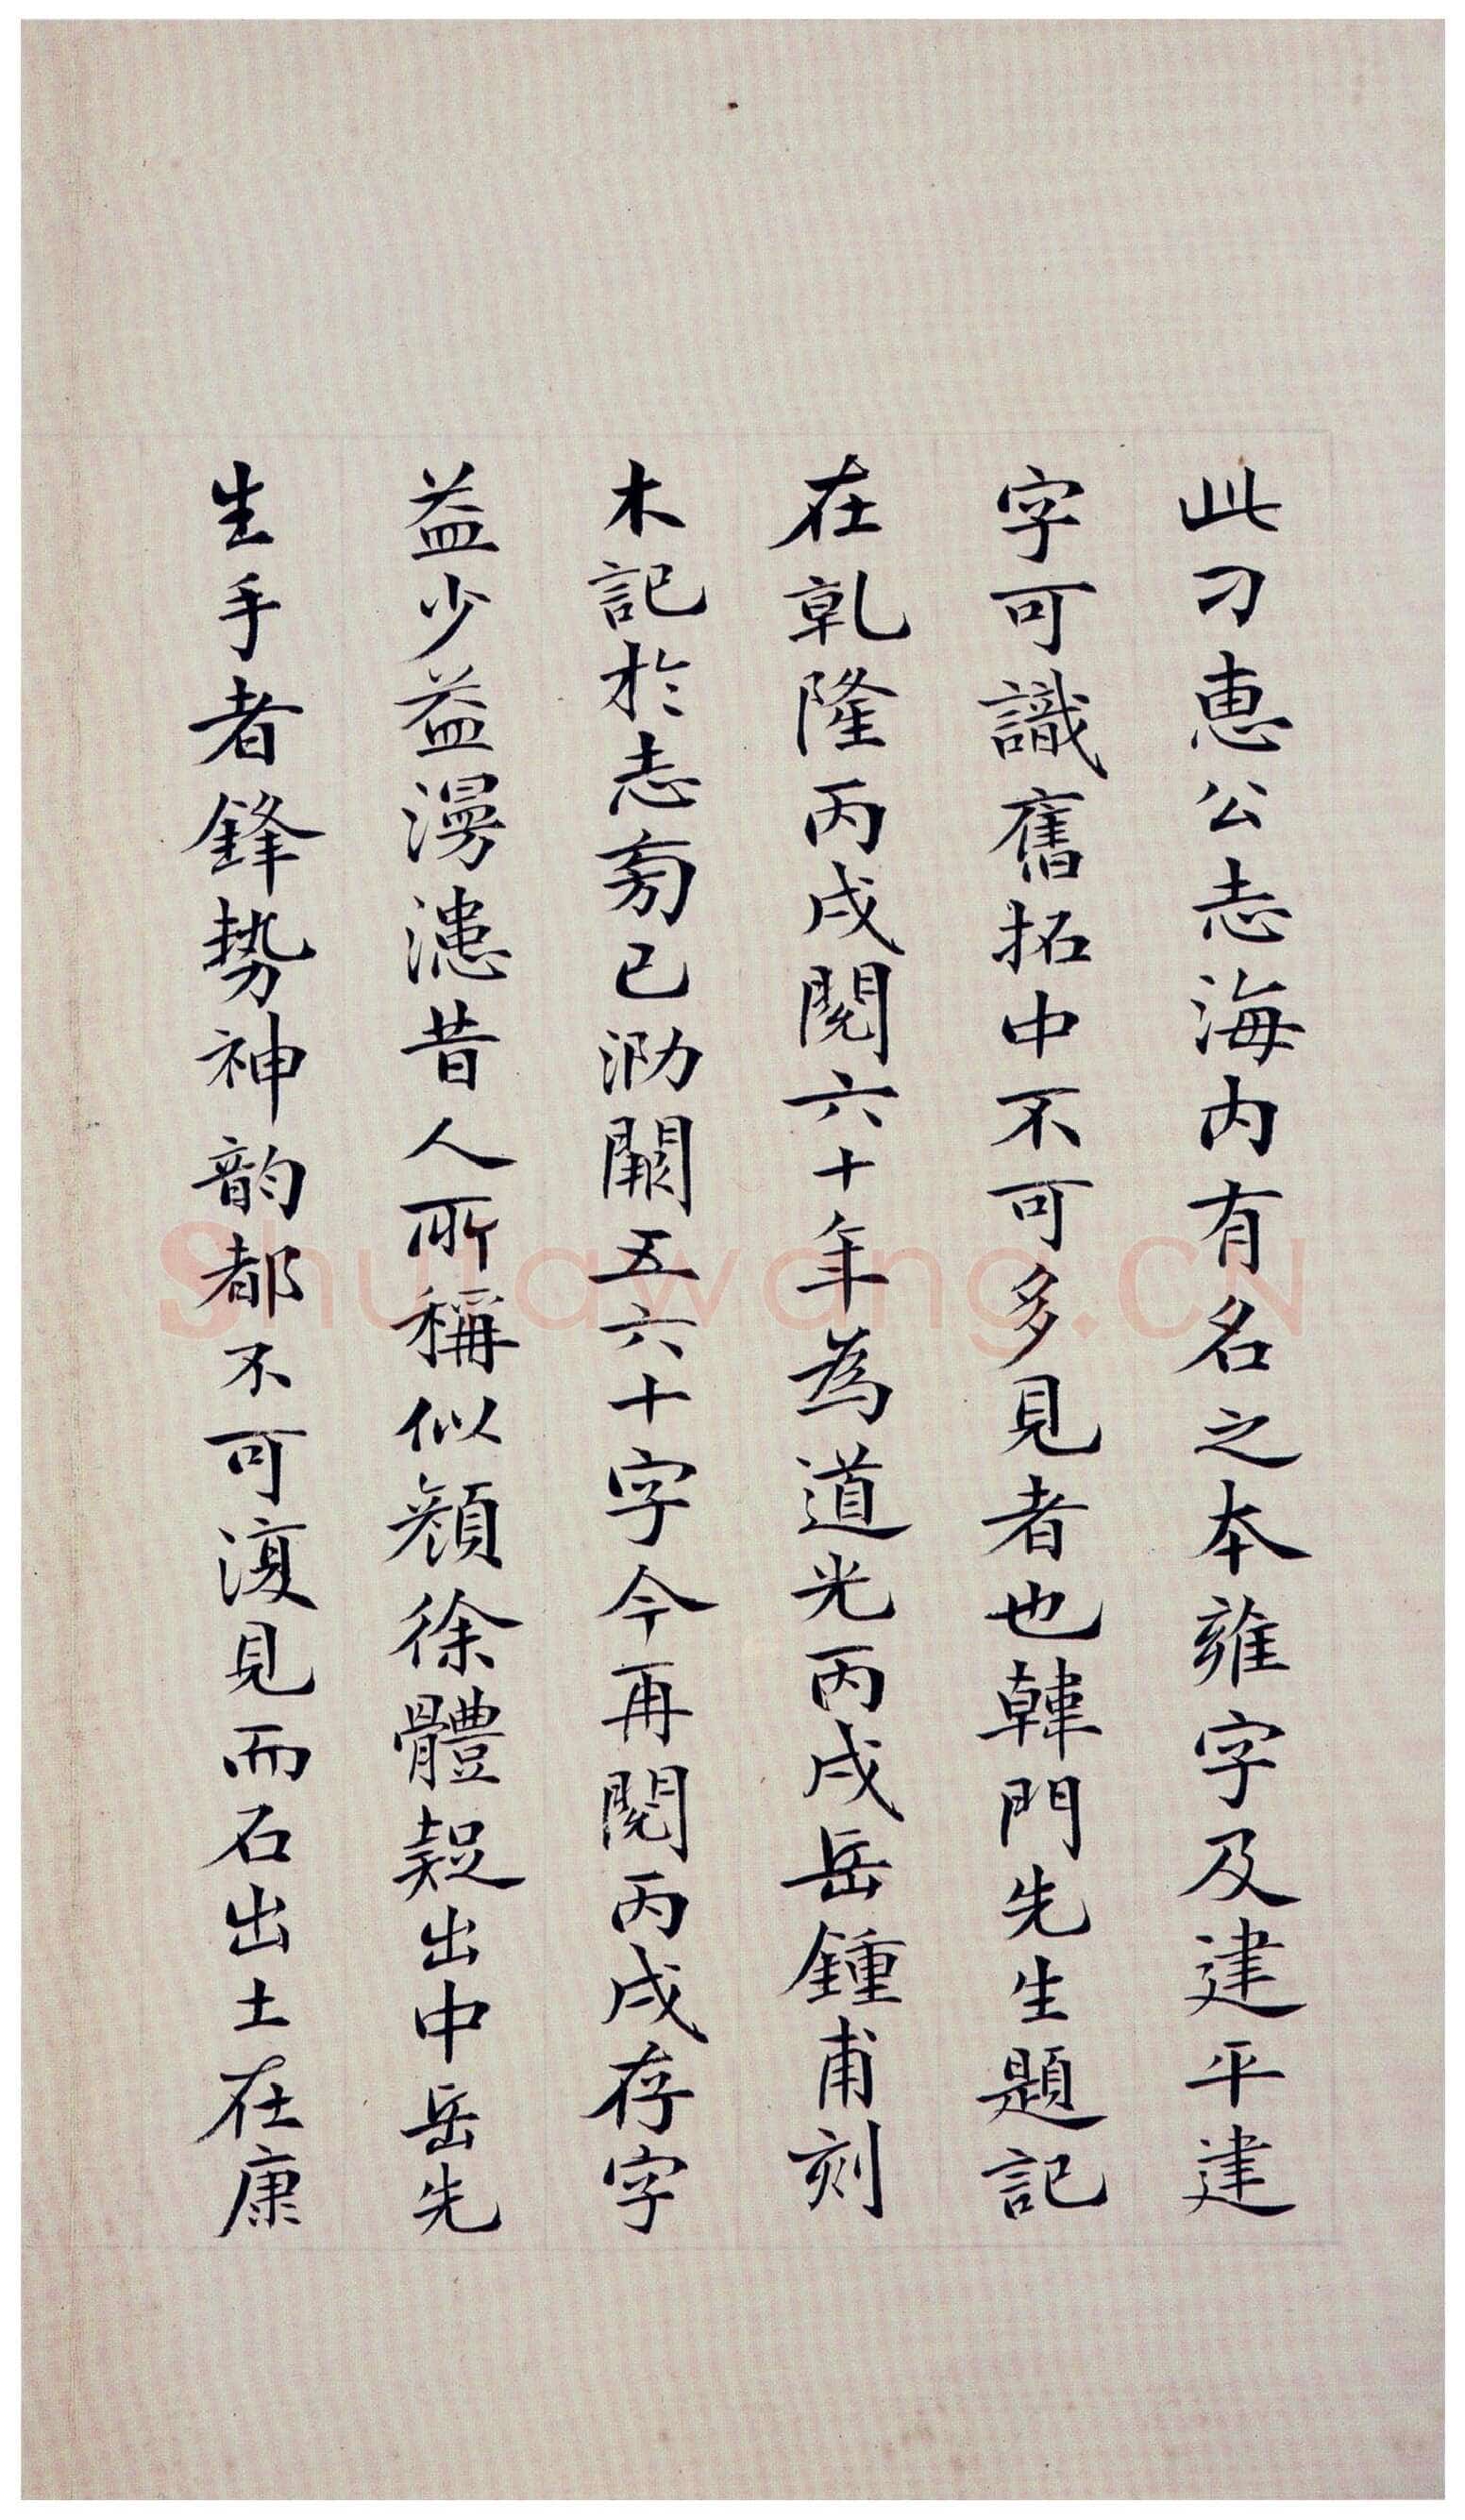 此刁惠公志海内有名之本雍字及建平建
字可識舊拓中不可多見者也韓門先生題記
在乹隆丙戌閱六十年為道光丙戌岳鍾甫刻
木記於志旁已泐闕五六十字今再閱丙戌存字
益少益漫漶昔人所稱似顏徐體疑出中岳先
生手者鋒势神韵都不可復見而石出土在康
Shufawang.CN